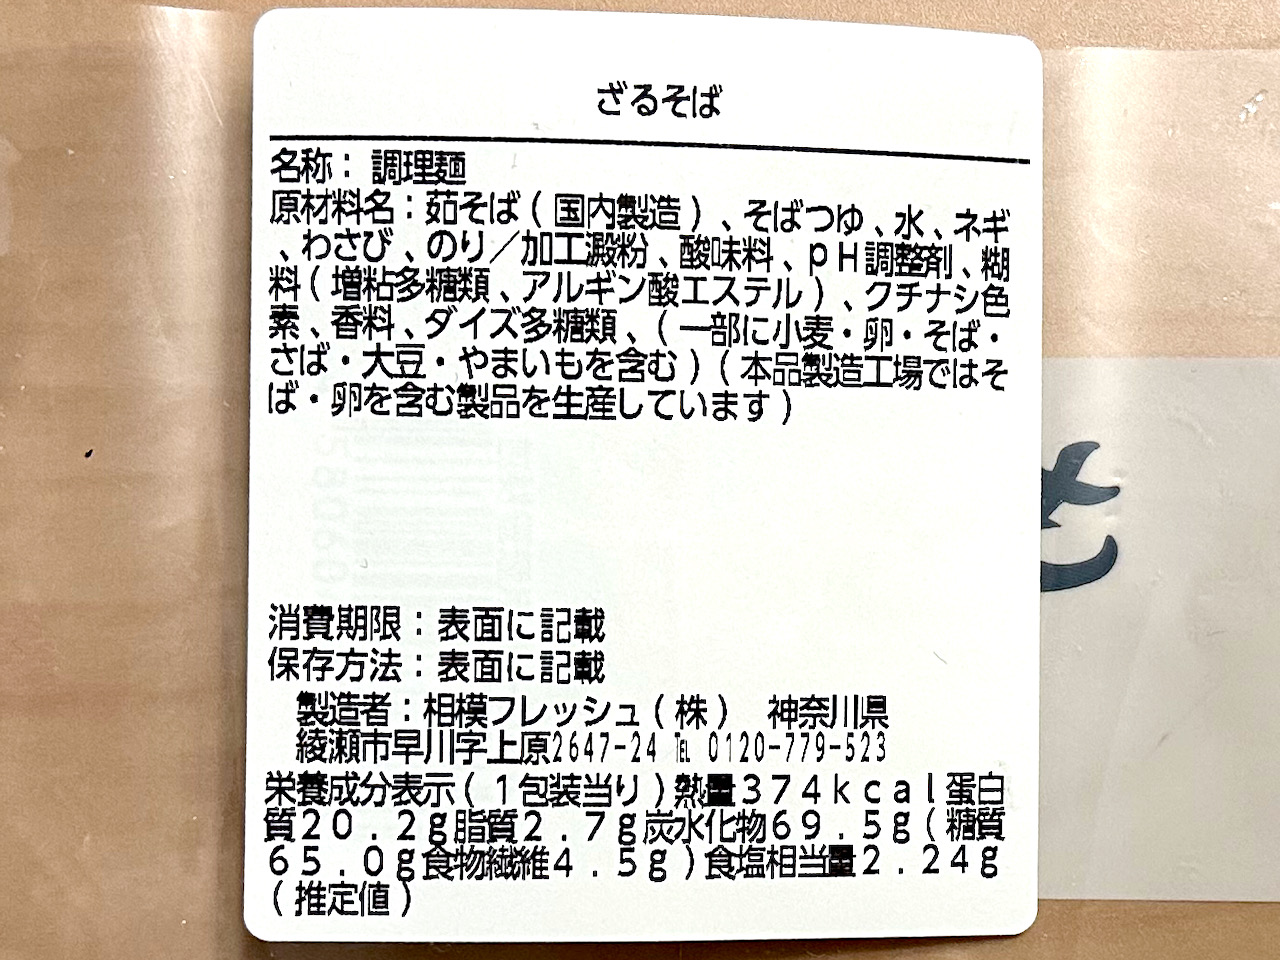 ざるそば
名称：調理麺
原材料名：茹そば（国内製造）、そばつゆ、水、ネギ
、わさび、のり／加工澱粉、酸味料、ｐＨ調整剤、糊
料（増粘多糖類、アルギン酸エステル）、クチナシ色
素、香料、ダイズ多糖類、（一部に小麦・卵・そば・
さば・大豆・やまいもを含む）（本品製造工場ではそ
ば・卵を含む製品を生産しています）
消費期限：表面に記載
保存方法：表面に記載
製造者：相模フレッシュ（株）　神奈川県
綾瀬市早川字上原2647-24 ℡ 0120-779-523
栄養成分表示（１包装当り）熱量３７４ｋｃａｌ蛋白
質２０．２ｇ脂質２．７ｇ炭水化物６９．５ｇ（糖質
６５．０ｇ食物繊維４．５ｇ）食塩相当量２．２４ｇ
（推定値）